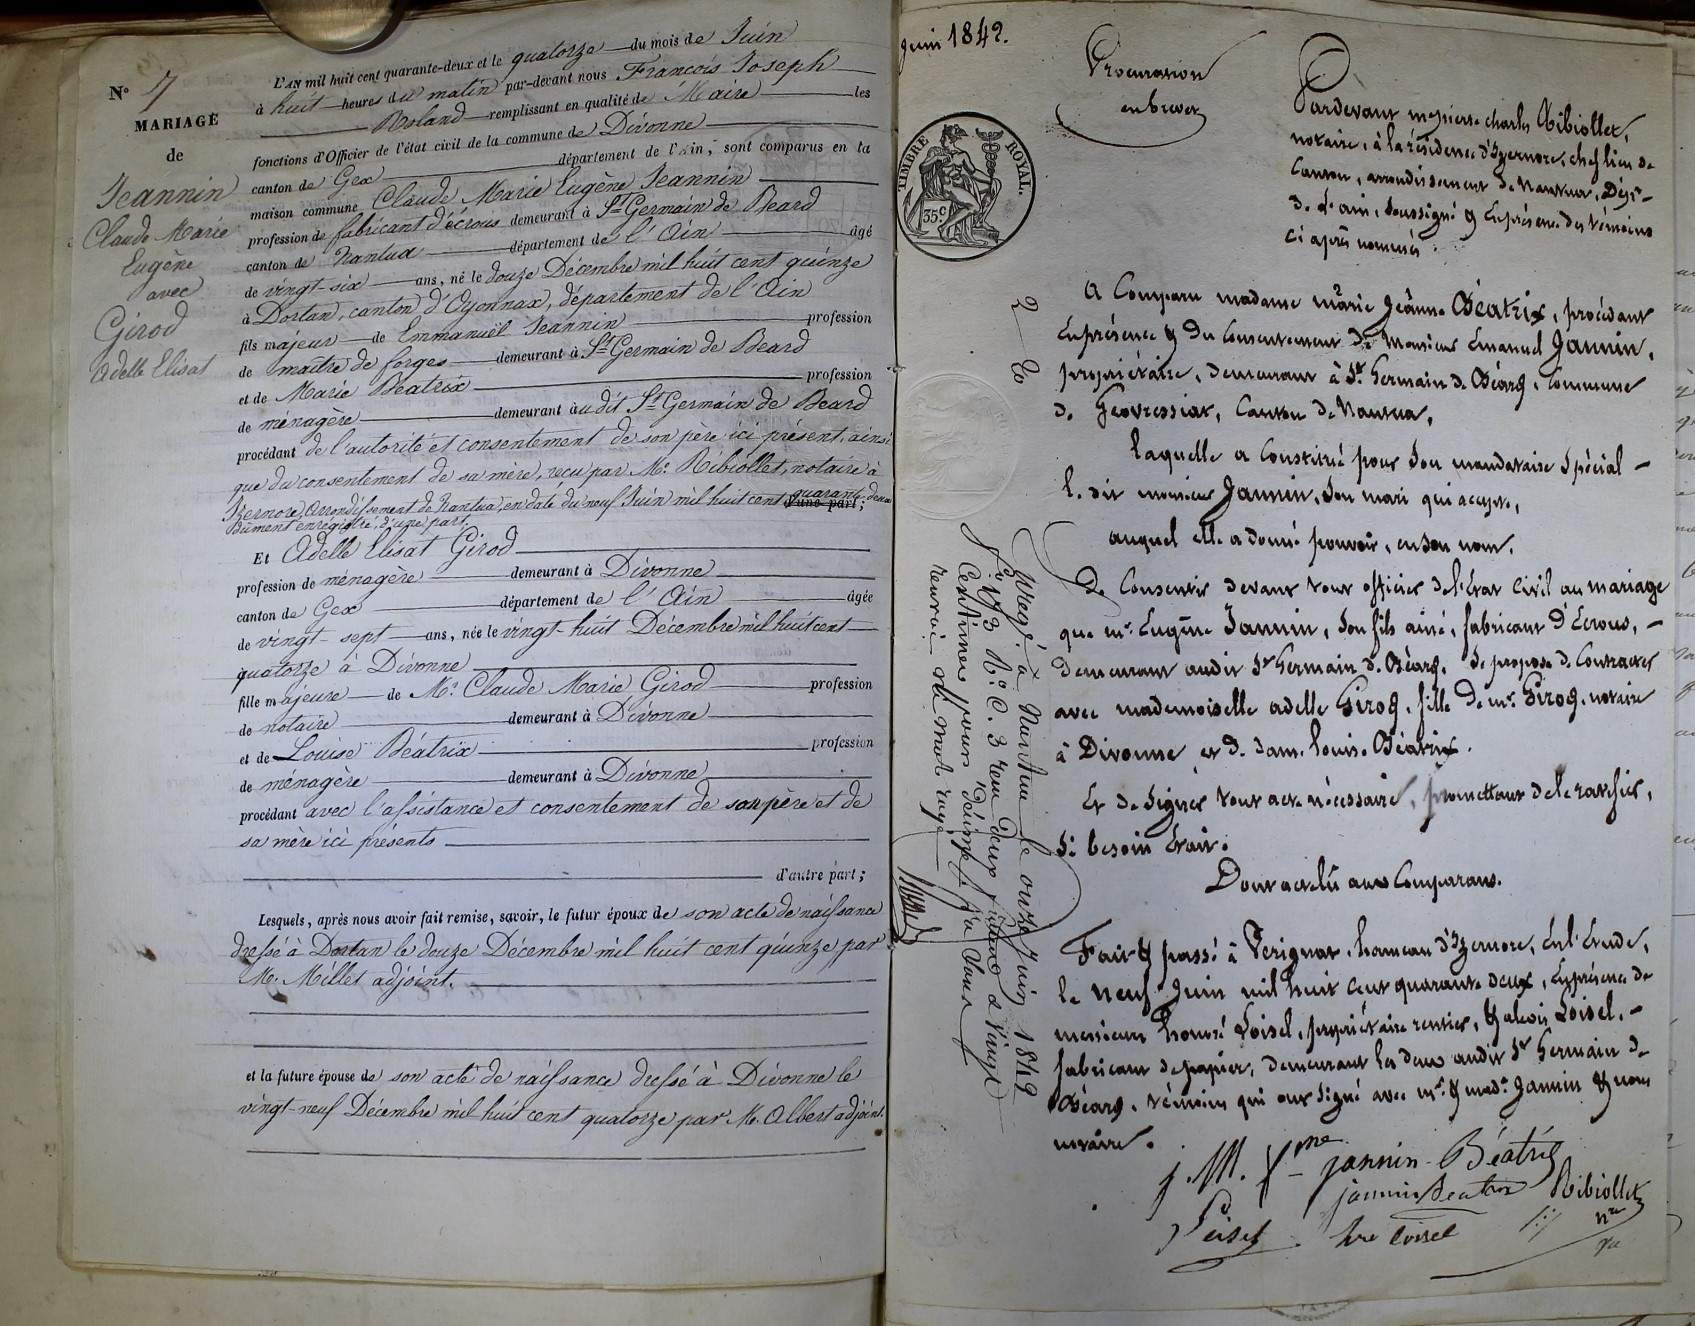 N° 7
MARIAGE
de
Jeannin
Claude Marie
Eugène
avec
Girod
Adelle Elisat
L'AN mil huit cent quarante-deux et le quatorze du mois de Juin
à huit heures du matin par-devant nous François Joseph
Roland remplissant en qualité de Maire les
fonctions d'Officier de l'état civil de la commune de Divonne
canton de Gex département de l'Ain, sont comparus en la
maison commune Claude Marie Eugène Jeannin
profession de fabricant d'écrous demeurant à St Germain de Beard
canton de Nantua département de l'Ain âgé
de vingt-six ans, né le douze Décembre mil huit cent quinze
à Dortan, canton d'Oyonnax, département de l'Ain
fils majeur de Emmanuël Jeannin profession
de maître de forges demeurant à St Germain de Beard
et de Marie Béatrix profession
de ménagère demeurant àudit St Germain de Beard
procédant de l'autorité et consentement de son père ici présent, ainsi
que du consentement de sa mère, reçu par Me Ribiollet, notaire à
Izernore, Arrondissement de Nantua, en date du neuf Juin mil huit cent quarante-deux
d'une part;
Dûment enregistré, d'une part.
Et Adelle Elisat Girod
profession de ménagère demeurant à Divonne
canton de Gex département de l'Ain âgée
de vingt-sept ans, née le vingt-huit Décembre mil huit cent
quatorze à Divonne
fille majeure de Me Claude Marie Girod profession
de notaire demeurant à Divonne
et de Louise Béatrix profession
de ménagère demeurant à Divonne
procédant avec l'assistance et consentement de son père et de
sa mère ici présents
d'autre part;
Lesquels, après nous avoir fait remise, savoir, le futur époux de son acte de naissance
dressé à Dortan le douze Décembre mil huit cent quinze par
M. Millet adjoint.
et la future épouse de son acte de naissance dressé à Divonne le
vingt-neuf Décembre mil huit cent quatorze par M. Albert adjoint.
Juin 1842.
Procuration
en brevet
TIMBRE ROYAL.
35 c
Pardevant messire charles Ribiollet,
notaire, à la résidence d'Izernore, chef lieu de
Canton, arrondissement de Nantua, Dépt
de l'ain, soussigné & en présence des témoins
ci après nommés.
A Comparu madame marie jeanne Béatrix, procédant
en présence & du Consentement de Monsieur Emanuel Jannin,
propriétaire, demeurant à St Germain de Béard, Commune
de Geovressiat, Canton de Nantua,
laquelle a Constitué pour son mandataire Spécial
le dit monsieur Jannin, son mari qui accepte,
auquel elle a donné pouvoir, en son nom,
De Consentir devant tout officier de l'état Civil au mariage
que mr Eugène Jannin, son fils ainé, fabricant d'Ecrous,
demeurant audit St Germain de Béard, se propose de Contracter
avec mademoiselle adelle Girod, fille de mr Girod, notaire
à Divonne et de dame louise Béatrix.
Et de Signer tout acte nécessaire, promettant de le ratifier,
Si besoin était.
Dont acte lû aux Comparans.
Fait & passé à Perignat, hameau d'Izernore, En l'Etude,
le neuf Juin mil huit Cent quarante deux, En présence de
messieurs honoré Loisel, propriétaire rentier, & alexis Loisel,
fabricant de papier, demeurant les deux audit St Germain de
Béard, témoins qui ont Signé avec mr & made Jannin & nous
notaire.
j. M. fme jannin Béatrix
jannin Beatrix Ribiollet
Loisel hre Loisel nre
Enregé à Nantua le onze Juin 1842
f° 173 R° C. 3 reçu deux francs & vingt
Centimes pour Décime